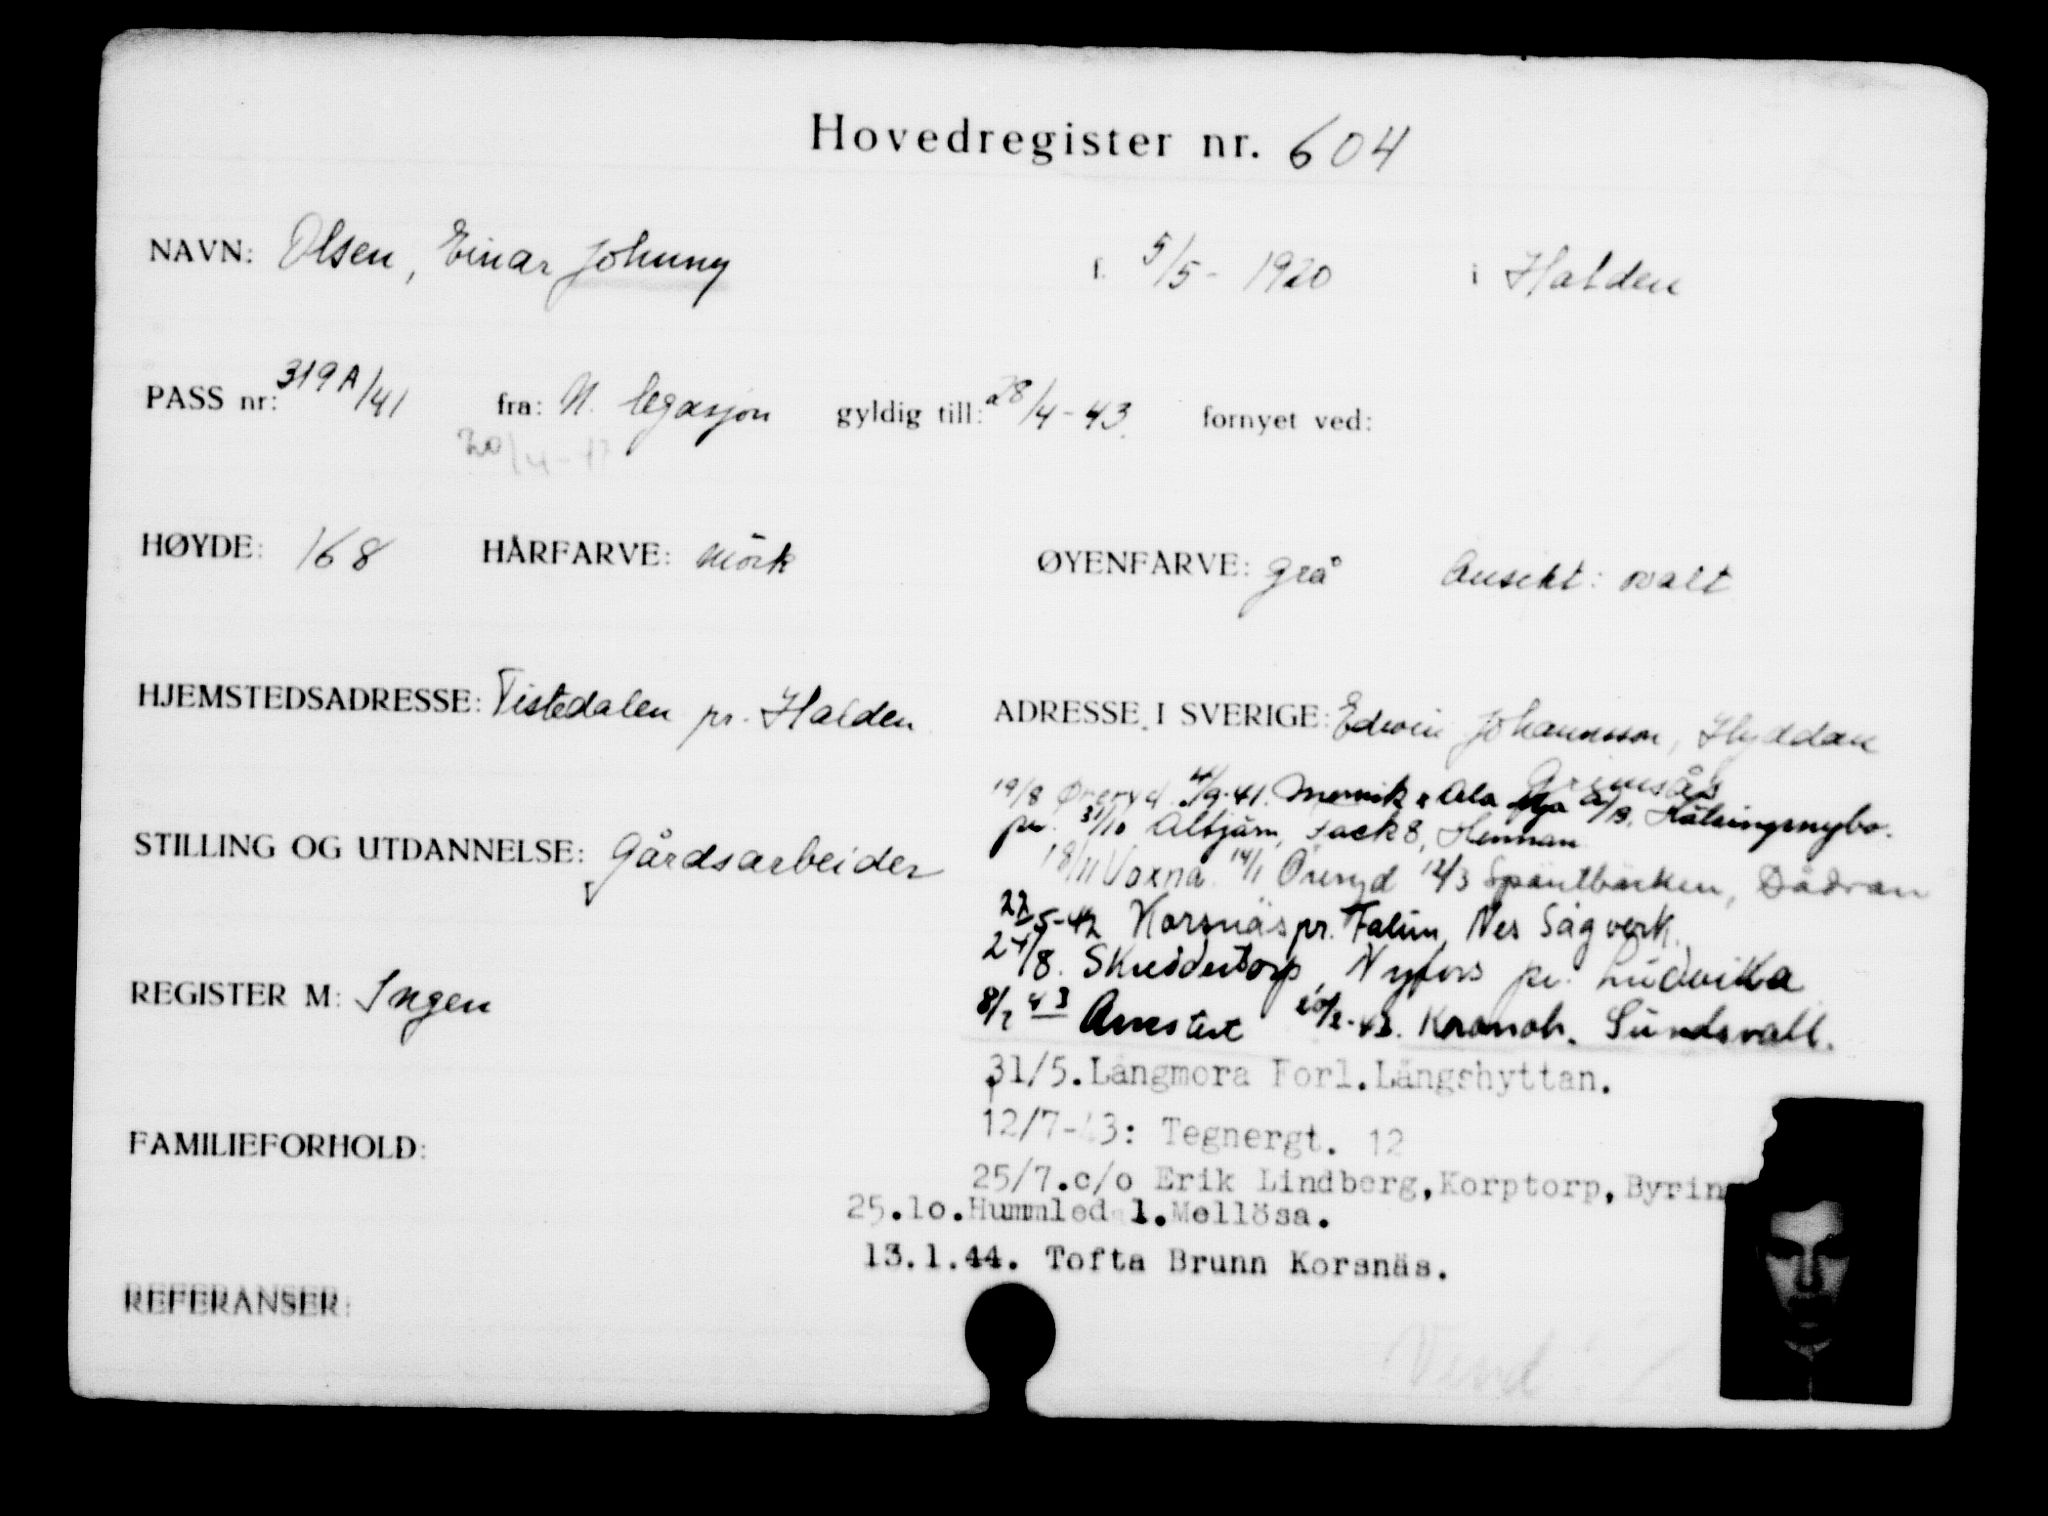 Hovedregister nr. 604
NAVN: Olsen, Einar Johnny f. 5/5 - 1920 i Halden
PASS nr: 319A/41 fra: N. legasjon gyldig till: 28/4-43. fornyet ved:
20/4-
HØYDE: 168 HÅRFARVE: mörk ØYENFARVE: grå Ansikt: ovalt
HJEMSTEDSADRESSE: Tistedalen pr. Halden ADRESSE I SVERIGE: Edwin Johannsson, Hyddan
Grimsås
19/8 Öreryd 4/9-41. Ala Nya A/B. Hälsingmybo.
pr. 31/10 Altjärn, Fack 8, Hennan
STILLING OG UTDANNELSE: Gårdsarbeider
18/11 Voxna 14/1 Öreryd 12/3 Späntbäcken, Dådran
22/5-42 Korsnäs pr. Falun, Nes Sågverk.
24/8. Skreddertorp, Nyfors pr. Ludvika
REGISTER M: Ingen
8/2 43 Arrestert 20/2-43. Kronoh. Sundsvall.
31/5. Långmora Forl. Långshyttan.
12/7-43: Tegnergt. 12
FAMILIEFORHOLD:
25/7. c/o Erik Lindberg, Korptorp, Byrin
25.10. Hummledal. Mellösa.
13.1.44. Tofta Brunn Korsnäs.
REFERANSER:
Vend